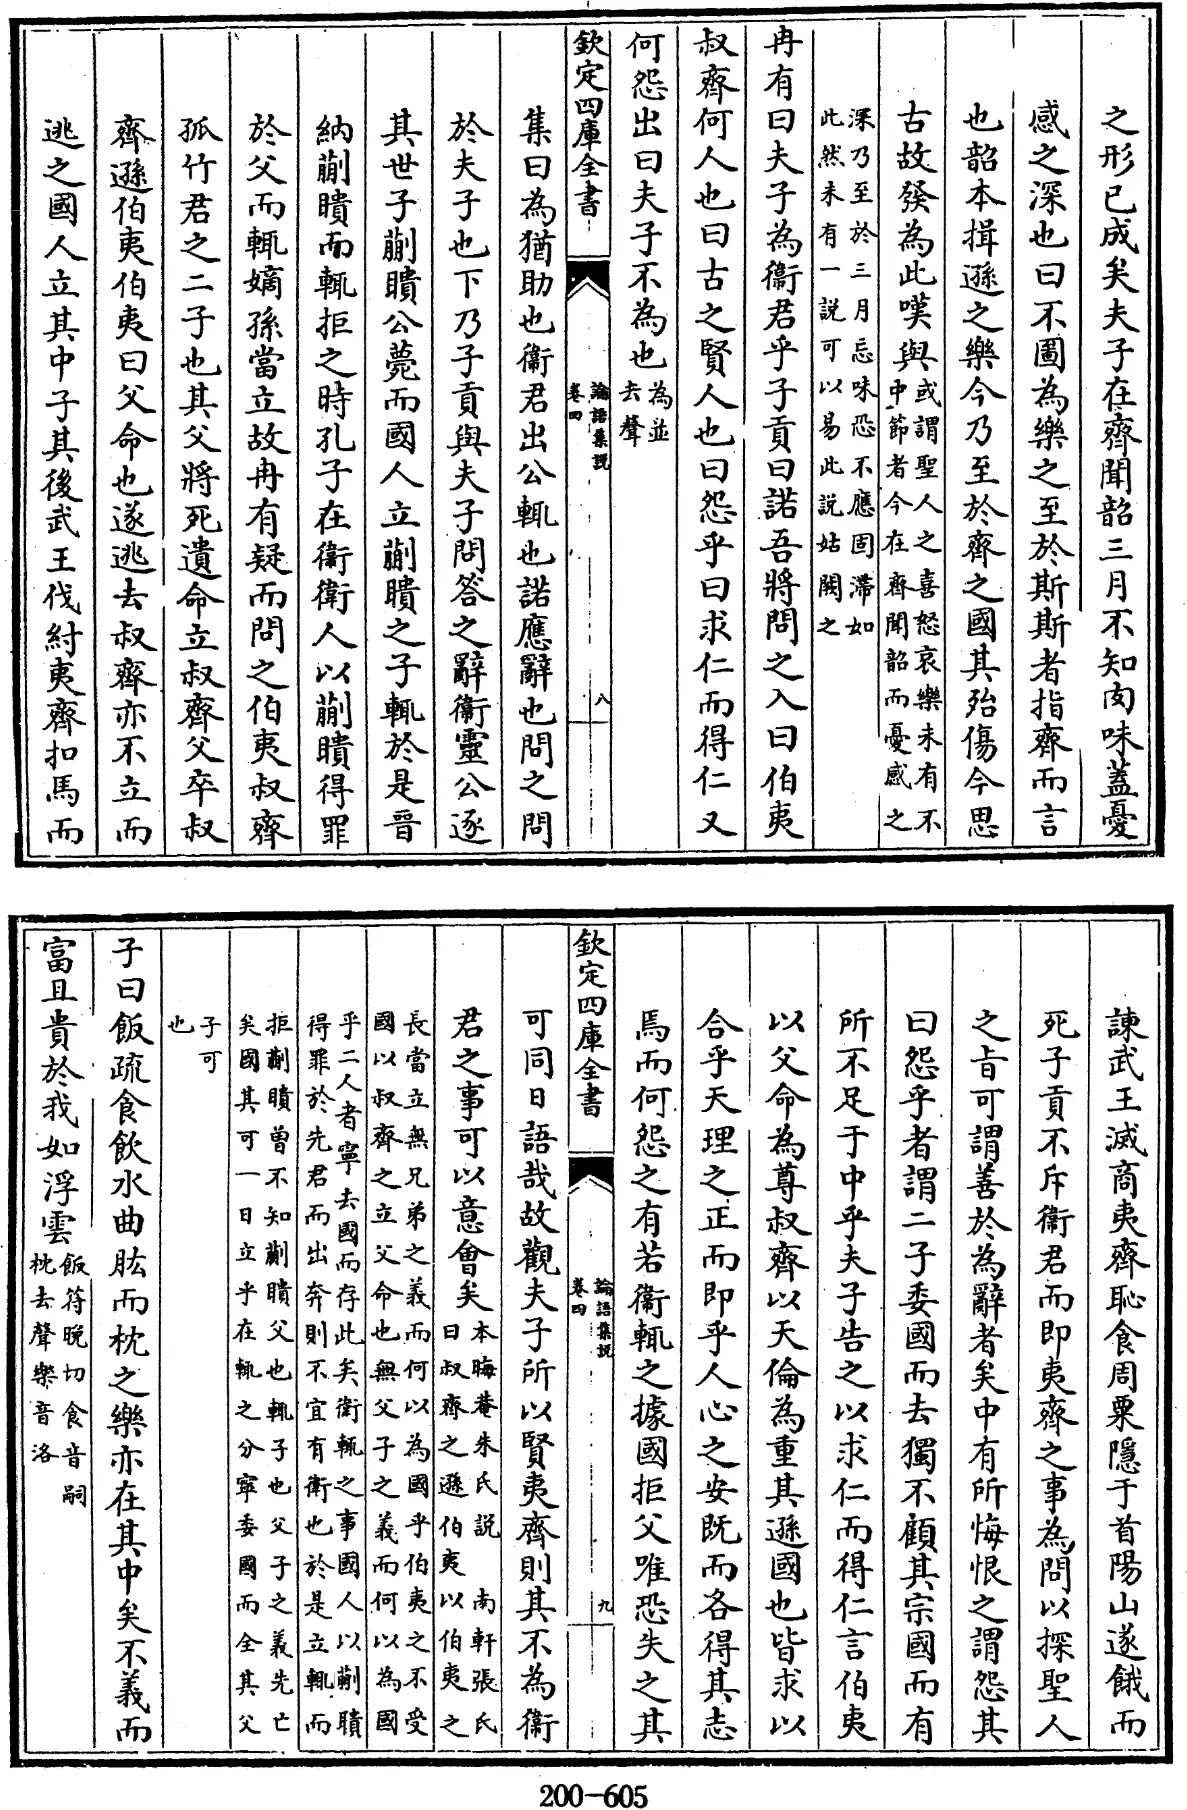 之形已成矣夫子在齊聞韶三月不知肉味蓋憂
感之深也曰不圖為樂之至於斯斯者指齊而言
也韶本揖遜之樂今乃至於齊之國其殆傷今思
古故發為此嘆與或謂聖人之喜怒哀樂未有不
中節者今在齊聞韶而憂感之
深乃至於三月忘味恐不應固滯如
此然未有一說可以易此說姑闕之
冉有曰夫子為衞君乎子貢曰諾吾將問之入曰伯夷
叔齊何人也曰古之賢人也曰怨乎曰求仁而得仁又
何怨出曰夫子不為也為並
去聲
欽定四庫全書
論語集說
卷四
八
集曰為猶助也衞君出公輒也諾應辭也問之問
於夫子也下乃子貢與夫子問答之辭衞靈公逐
其世子蒯聵公薨而國人立蒯聵之子輒於是晉
納蒯聵而輒拒之時孔子在衞衞人以蒯聵得罪
於父而輒嫡孫當立故冉有疑而問之伯夷叔齊
孤竹君之二子也其父將死遺命立叔齊父卒叔
齊遜伯夷伯夷曰父命也遂逃去叔齊亦不立而
逃之國人立其中子其後武王伐紂夷齊扣馬而
諫武王滅商夷齊恥食周粟隱于首陽山遂餓而
死子貢不斥衞君而即夷齊之事為問以探聖人
之旨可謂善於為辭者矣中有所悔恨之謂怨其
曰怨乎者謂二子委國而去獨不顧其宗國而有
所不足于中乎夫子告之以求仁而得仁言伯夷
以父命為尊叔齊以天倫為重其遜國也皆求以
合乎天理之正而即乎人心之安既而各得其志
焉而何怨之有若衞輒之據國拒父唯恐失之其
欽定四庫全書
論語集說
卷四
九
可同日語哉故觀夫子所以賢夷齊則其不為衞
君之事可以意會矣本晦菴朱氏說 南軒張氏
曰叔齊之遜伯夷以伯夷之
長當立無兄弟之義而何以為國乎伯夷之不受
國以叔齊之立父命也無父子之義而何以為國
乎二人者寧去國而存此矣衞輒之事國人以蒯聵
得罪於先君而出奔則不宜有衞也於是立輒而
拒蒯聵曾不知蒯聵父也輒子也父子之義先亡
矣國其可一日立乎在輒之分寧委國而全其父
子可
也
子曰飯疏食飲水曲肱而枕之樂亦在其中矣不義而
富且貴於我如浮雲飯符晚切食音嗣
枕去聲樂音洛
200-605